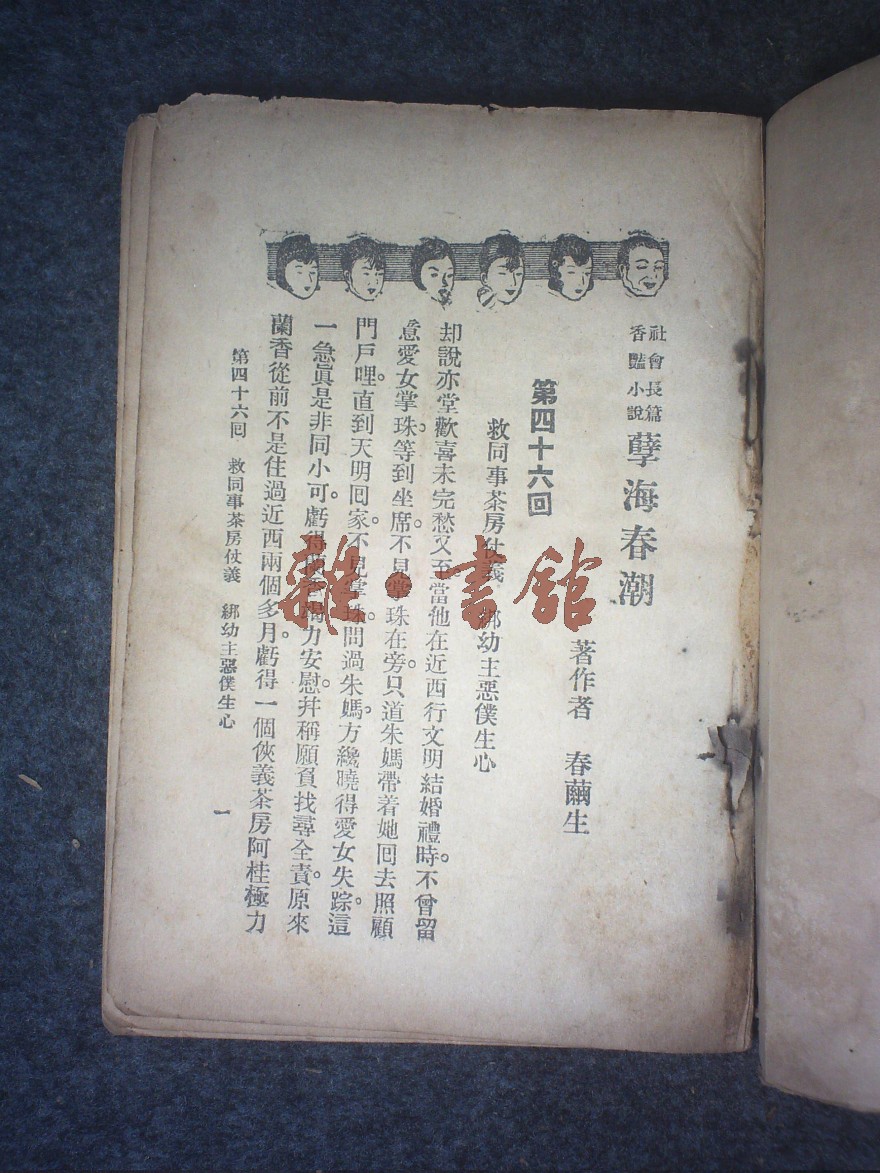 社會長篇
香豔小說
孽海春潮
著作者 春繭生
第四十六回
救同事茶房仗義 綁幼主惡僕生心
却說亦堂歡喜未完愁又至當他在近西行文明結婚禮時。不曾留
意愛女掌珠等到坐席。不見掌珠在旁。只道朱媽帶着她囘去照顧
門戶哩。直到天明囘家。不見掌珠。問過朱媽。方纔曉得愛女失踪。這
一急眞是非同小可。虧得 竭力安慰。幷稱願負找尋全責。原來
蘭香從前不是住過近西兩個多月。虧得一個俠義茶房阿桂極力
第四十六囘 救同事茶房仗義 綁幼主惡僕生心
一
雜·書館